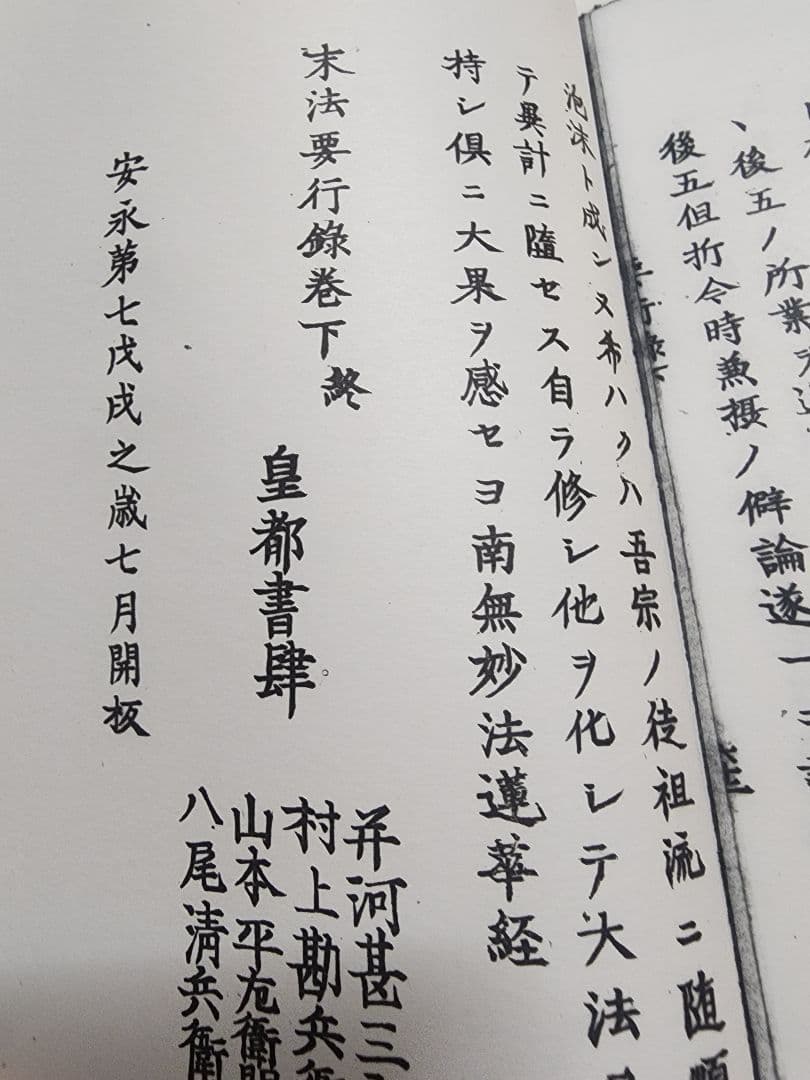 、後五ノ所業
後五但折令時兼摂ノ僻論遂
泡沫ト成ンヌ希ハクハ吾宗ノ徒祖流ニ随順
テ異計ニ隨セス自ラ修シ他ヲ化シテ大法
持シ倶ニ大果ヲ感セヨ南無妙法蓮華経
末法要行錄巻下終
皇都書肆
井河甚三
村上勘兵衛
山本平左衛門
八尾清兵衛
安永第七戊戌之歳七月開板